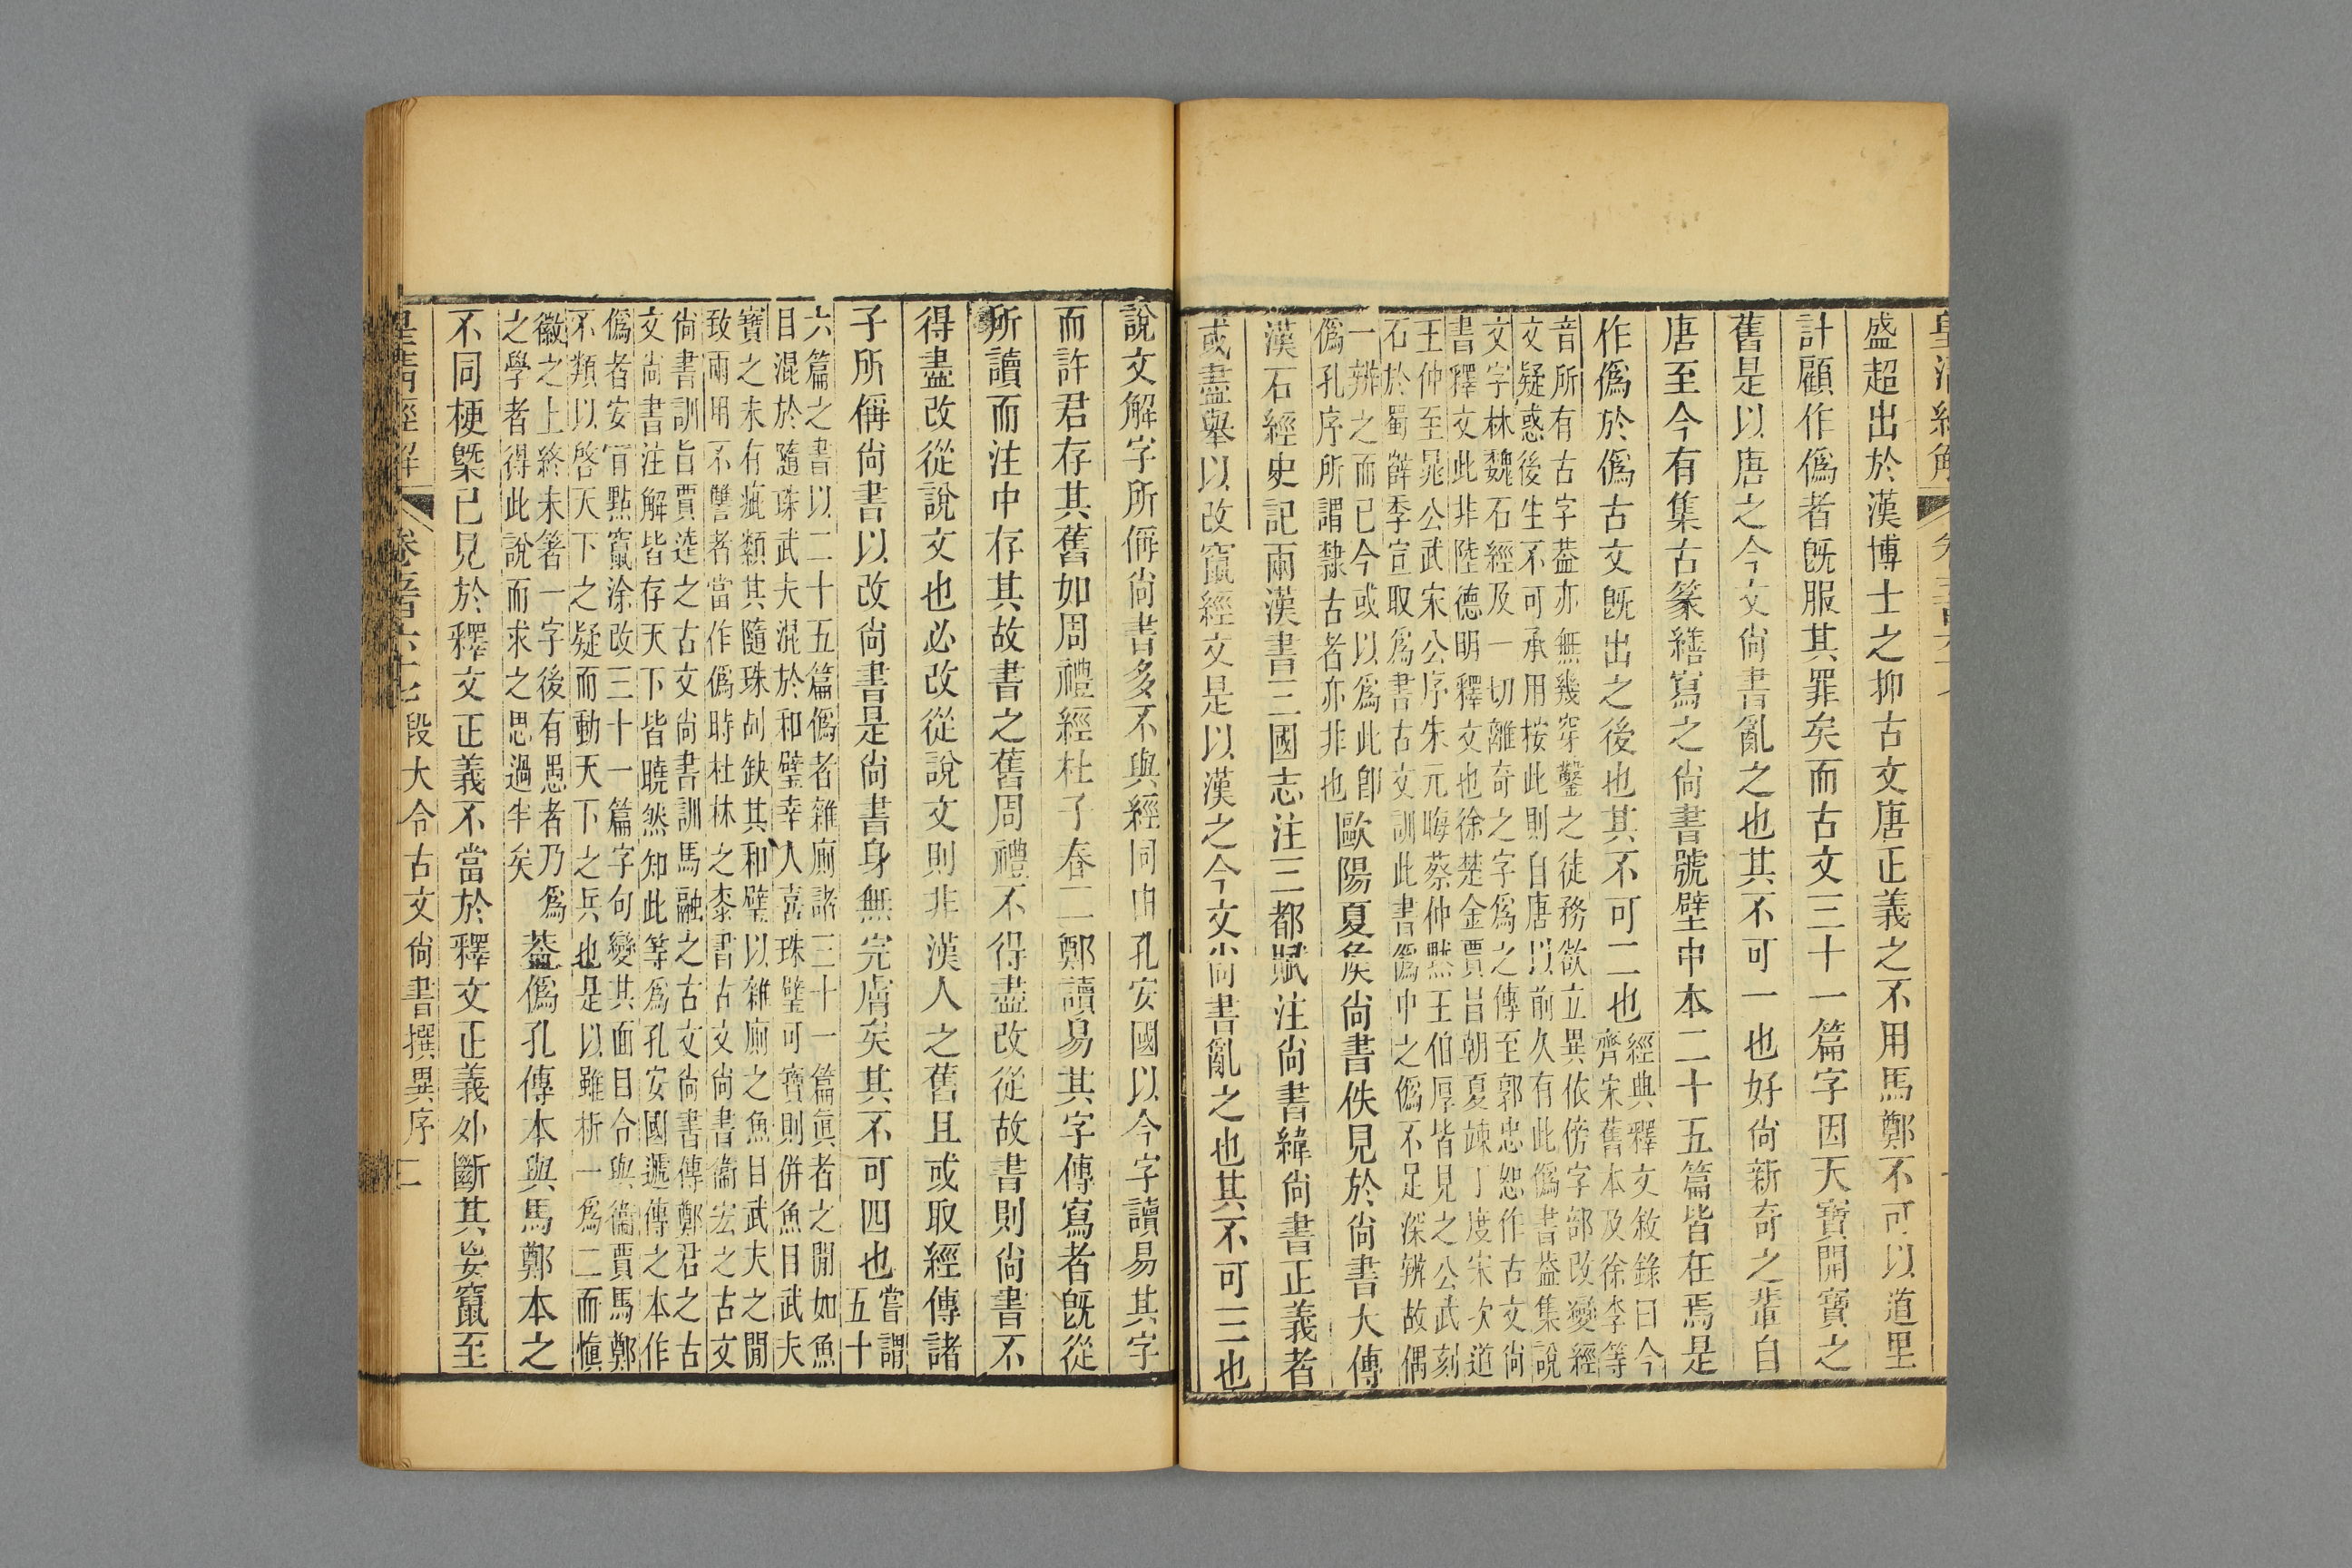 盛超出於漢博士之抑古文唐正義之不用馬鄭不可以道里
計顧作僞者旣服其罪矣而古文三十一篇字因天寶開寶之
舊是以唐之今文尙書亂之也其不可一也好尙新奇之輩自
唐至今有集古篆繕寫之尙書號壁中本二十五篇皆在焉是
作僞於僞古文旣出之後也其不可二也
經典釋文敘錄曰今
齊宋舊本及徐李等
音所有古字葢亦無幾穿鑿之徒務欲立異依傍字部改變經
文疑惑後生不可承用桉此則自唐以前久有此僞書葢集說
文字林魏石經及一切離奇之字爲之傳至郭忠恕作古文尙
書釋文此非陸德明釋文也徐楚金賈昌朝夏竦丁度宋次道
王仲至晁公武宋公序朱元晦蔡仲默王伯厚皆見之公武刻
石於蜀薛季宣取爲書古文訓此書僞中之僞不足深辨故偶
一辨之而已今或以爲此卽
僞孔序所謂隸古者亦非也
歐陽夏矦尙書佚見於尙書大傳
漢石經史記兩漢書三國志注三都賦注尙書緯尙書正義者
或盡舉以改竄經文是以漢之今文尙書亂之也其不可三也
說文解字所偁尙書多不與經同由孔安國以今字讀易其字
而許君存其舊如周禮經杜子春二鄭讀易其字傳寫者旣從
所讀而注中存其故書之舊周禮不得盡改從故書則尙書不
得盡改從說文也必改從說文則非漢人之舊且或取經傳諸
子所偁尙書以改尙書是尙書身無完膚矣其不可四也
嘗謂
五十
六篇之書以二十五篇僞者雜廁諸三十一篇眞者之閒如魚
目混於隨珠武夫混於和璧幸人喜珠璧可寶則併魚目武夫
寶之未有疵纇其隨珠刓缺其和璧以雜廁之魚目武夫之閒
致兩用不讐者當作僞時杜林之桼書古文尙書衞宏之古文
尙書訓旨賈逵之古文尙書訓馬融之古文尙書傳鄭君之古
文尙書注解皆存天下皆曉然知此等爲孔安國遞傳之本作
僞者安肎點竄涂改三十一篇字句變其面目令與衞賈馬鄭
不類以啓天下之疑而動天下之兵也是以雖析一爲二而愼
徽之上終未箸一字後有愚者乃爲
之學者得此說而求之思過半矣
葢僞孔傳本與馬鄭本之
不同梗槩已見於釋文正義不當於釋文正義外斷其妄竄至
段大令古文尙書撰異序 二